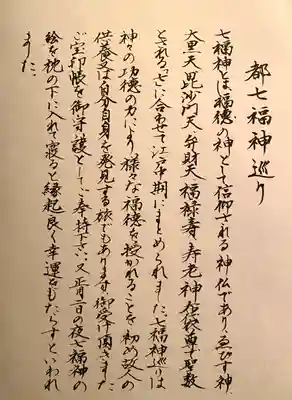 都七福神巡り
七福神とは福徳の神として信仰される神仏であり、ゑびす神、
大黒天毘沙門天弁財天福禄寿寿老神布袋尊で聖数
とされる「七」に合わせて江戸中期にまとめられました。七福神巡りは
神々の功徳の力により様々な福徳を授かれることを初め故人の
供養又は自分自身を発見する旅でもあります。御受け頂きました
ご宝印帳を御守護としてご奉持下さい。又正月二日の夜七福神の
絵を枕の下に入れて寝ると縁起良く幸運をもたらすといわれ
ました。